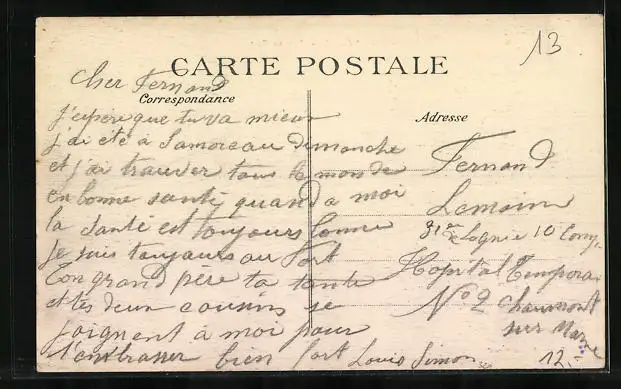 13
CARTE POSTALE
Correspondance
Adresse
Cher Fernand
j'espère que tu va mieux
j'ai été à Samoreau dimanche
et j'ai trouver tous le monde
en bonne santé, quand a moi
la santé est toujours bonne
je suis toujours au Port
Ton grand père ta tante
et tes deux cousins se
joignent à moi pour
t'embrasser bien fort Louis Simon
Fernand
Lemoine
31e 10 Comp.
Hopital Tempora
No 2 Chaumont
sur Marne
12.-